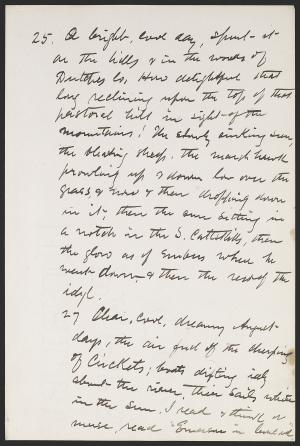 25. A bright, cool day, spent it
on the hills & in the woods of
Dutchess Co. How delightful that
long reclining upon the top of that
pastoral hill in sight of the
mountains! The slowly sinking sun,
the bleating sheep. the marsh hawk
prowling up & down low over the
grass, & now & then dropping down
in it; then the sun setting in
a notch in the S. Catskills, then
the glow as of embers where he
went down, & then the rest of the
idyl.
27 Clear, cool, dreamy August
days, the air full of the chirping
of Crickets; boats drifting idly
about the river, their sails white
in the sun. I read & think or
muse, read Emerson in